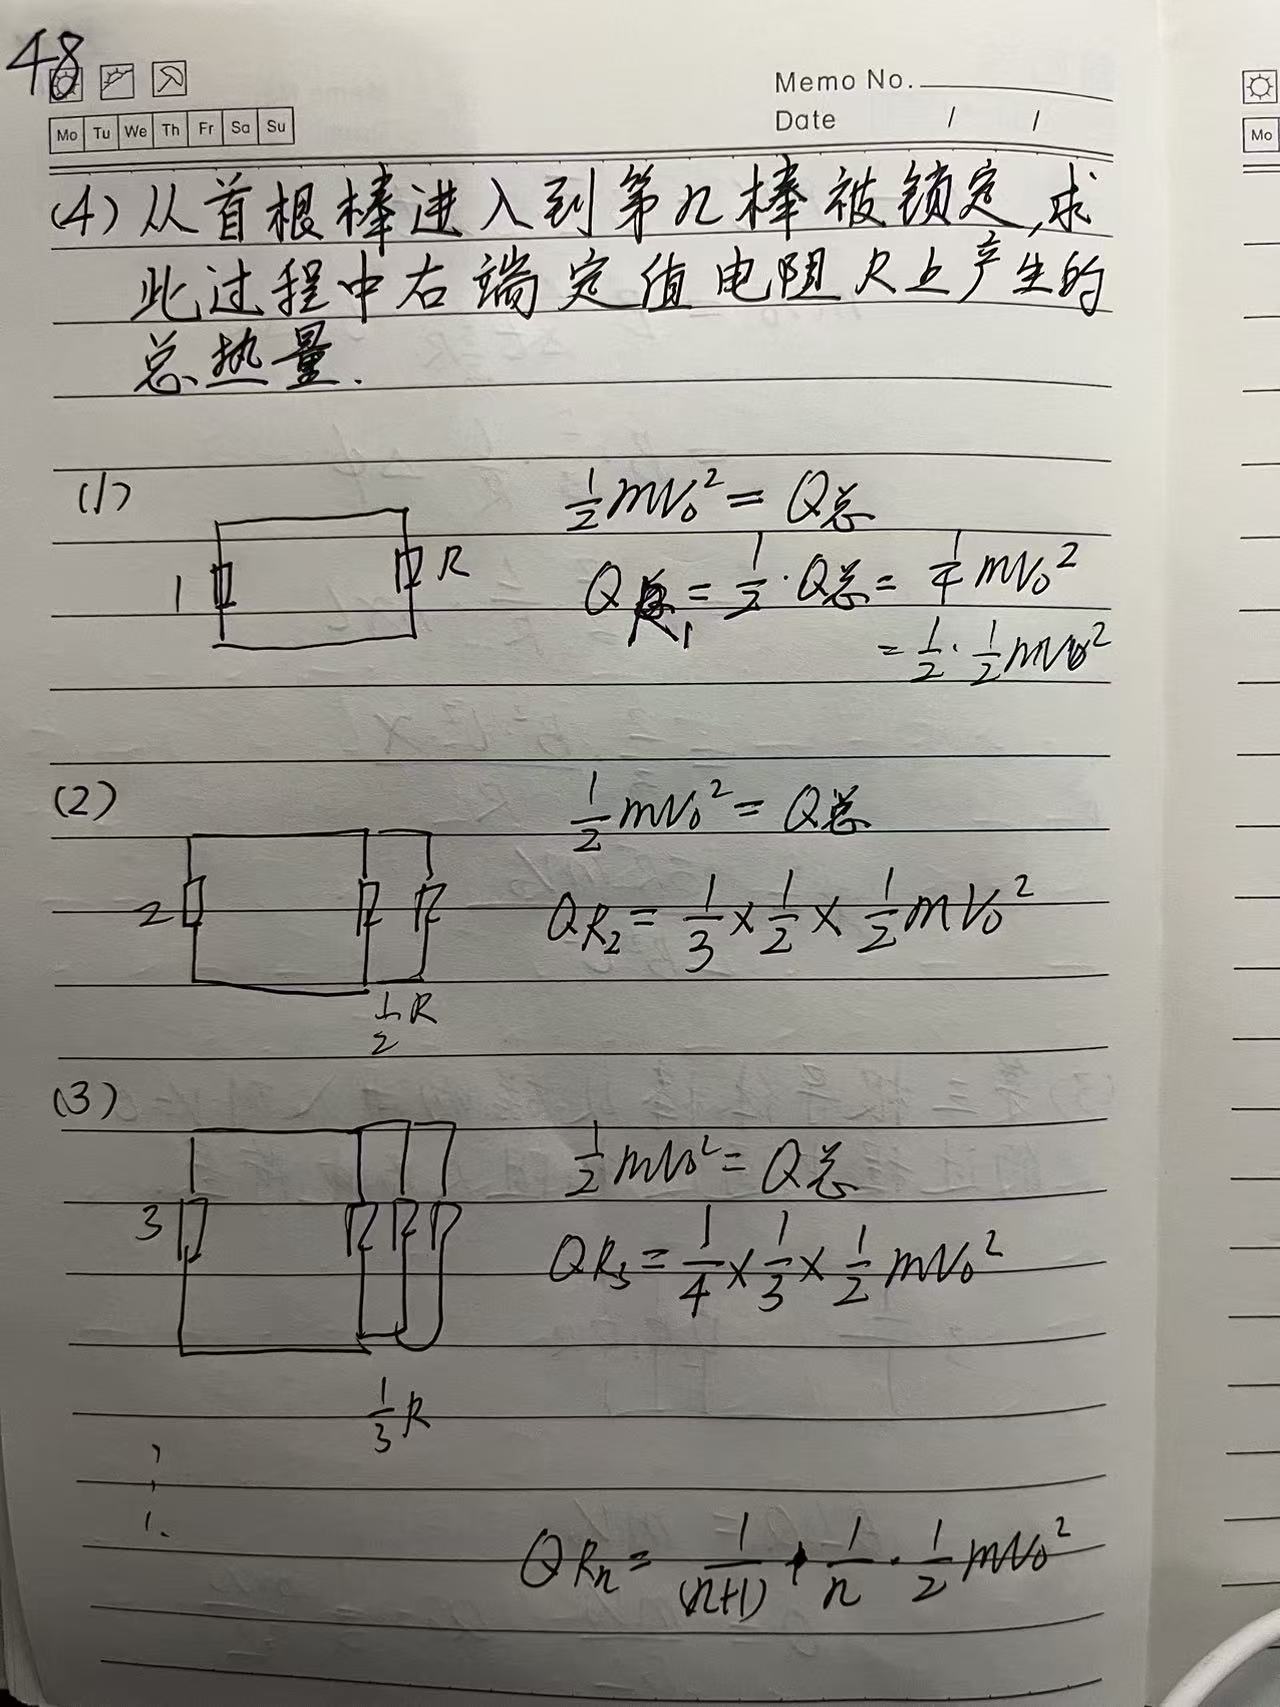 48
Memo No.
Mo Tu We Th Fr Sa Su
Date / /
Mo
(4) 从首根棒进入到第n棒被锁定,求
此过程中右端定值电阻R上产生的
总热量.
(1)
1 R
½mv₀² = Q总
Q_R₁ = ½·Q总 = ¼mv₀²
= ½·½mv₀²
(2)
2
½R
½mv₀² = Q总
Q_R₂ = ⅓×½×½mv₀²
(3)
3
⅓R
½mv₀² = Q总
Q_R₃ = ¼×⅓×½mv₀²
Q_Rₙ = 1/(n+1)·1/n·½mv₀²